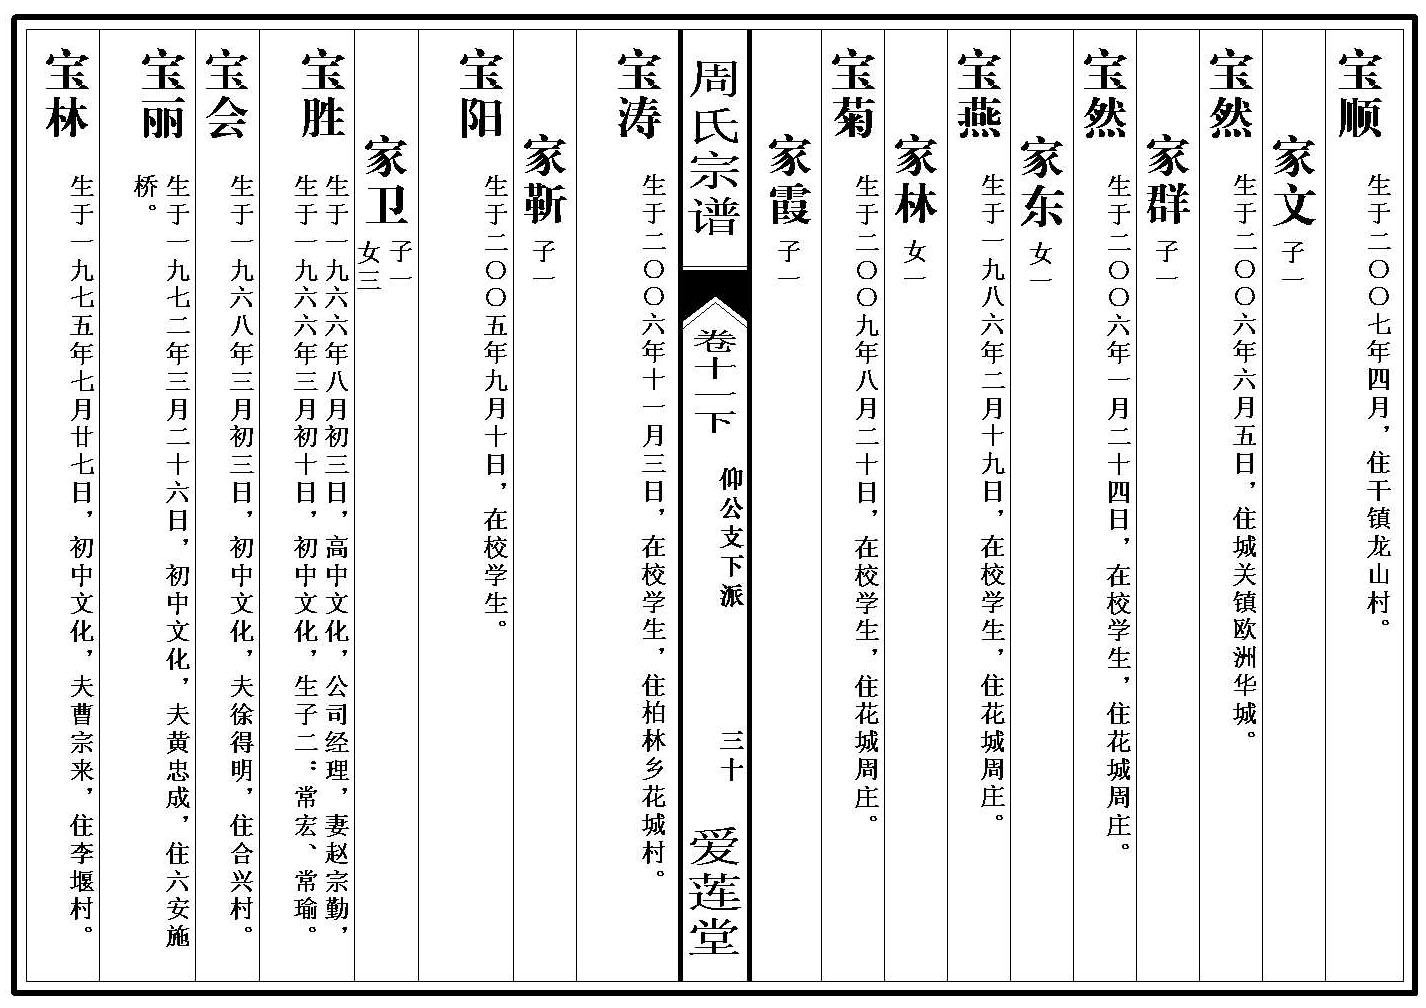 宝顺
生于二〇〇七年四月，住干镇龙山村。
家文 子一
宝然
生于二〇〇六年六月五日，住城关镇欧洲华城。
家群 子一
宝然
生于二〇〇六年一月二十四日，在校学生，住花城周庄。
家东 女一
宝燕
生于一九八六年二月十九日，在校学生，住花城周庄。
家林 女一
宝菊
生于二〇〇九年八月二十日，在校学生，住花城周庄。
家霞 子一
周氏宗谱
卷十一下
仰公支下派
三十
爱莲堂
宝涛
生于二〇〇六年十一月三日，在校学生，住柏林乡花城村。
家靳 子一
宝阳
生于二〇〇五年九月十日，在校学生。
家卫 子一
女三
宝胜
生于一九六六年八月初三日，高中文化，公司经理，妻赵宗勤，
生于一九六六年三月初十日，初中文化，生子二：常宏、常瑜。
宝会
生于一九六八年三月初三日，初中文化，夫徐得明，住合兴村。
宝丽
生于一九七二年三月二十六日，初中文化，夫黄忠成，住六安施
桥。
宝林
生于一九七五年七月廿七日，初中文化，夫曹宗来，住李堰村。